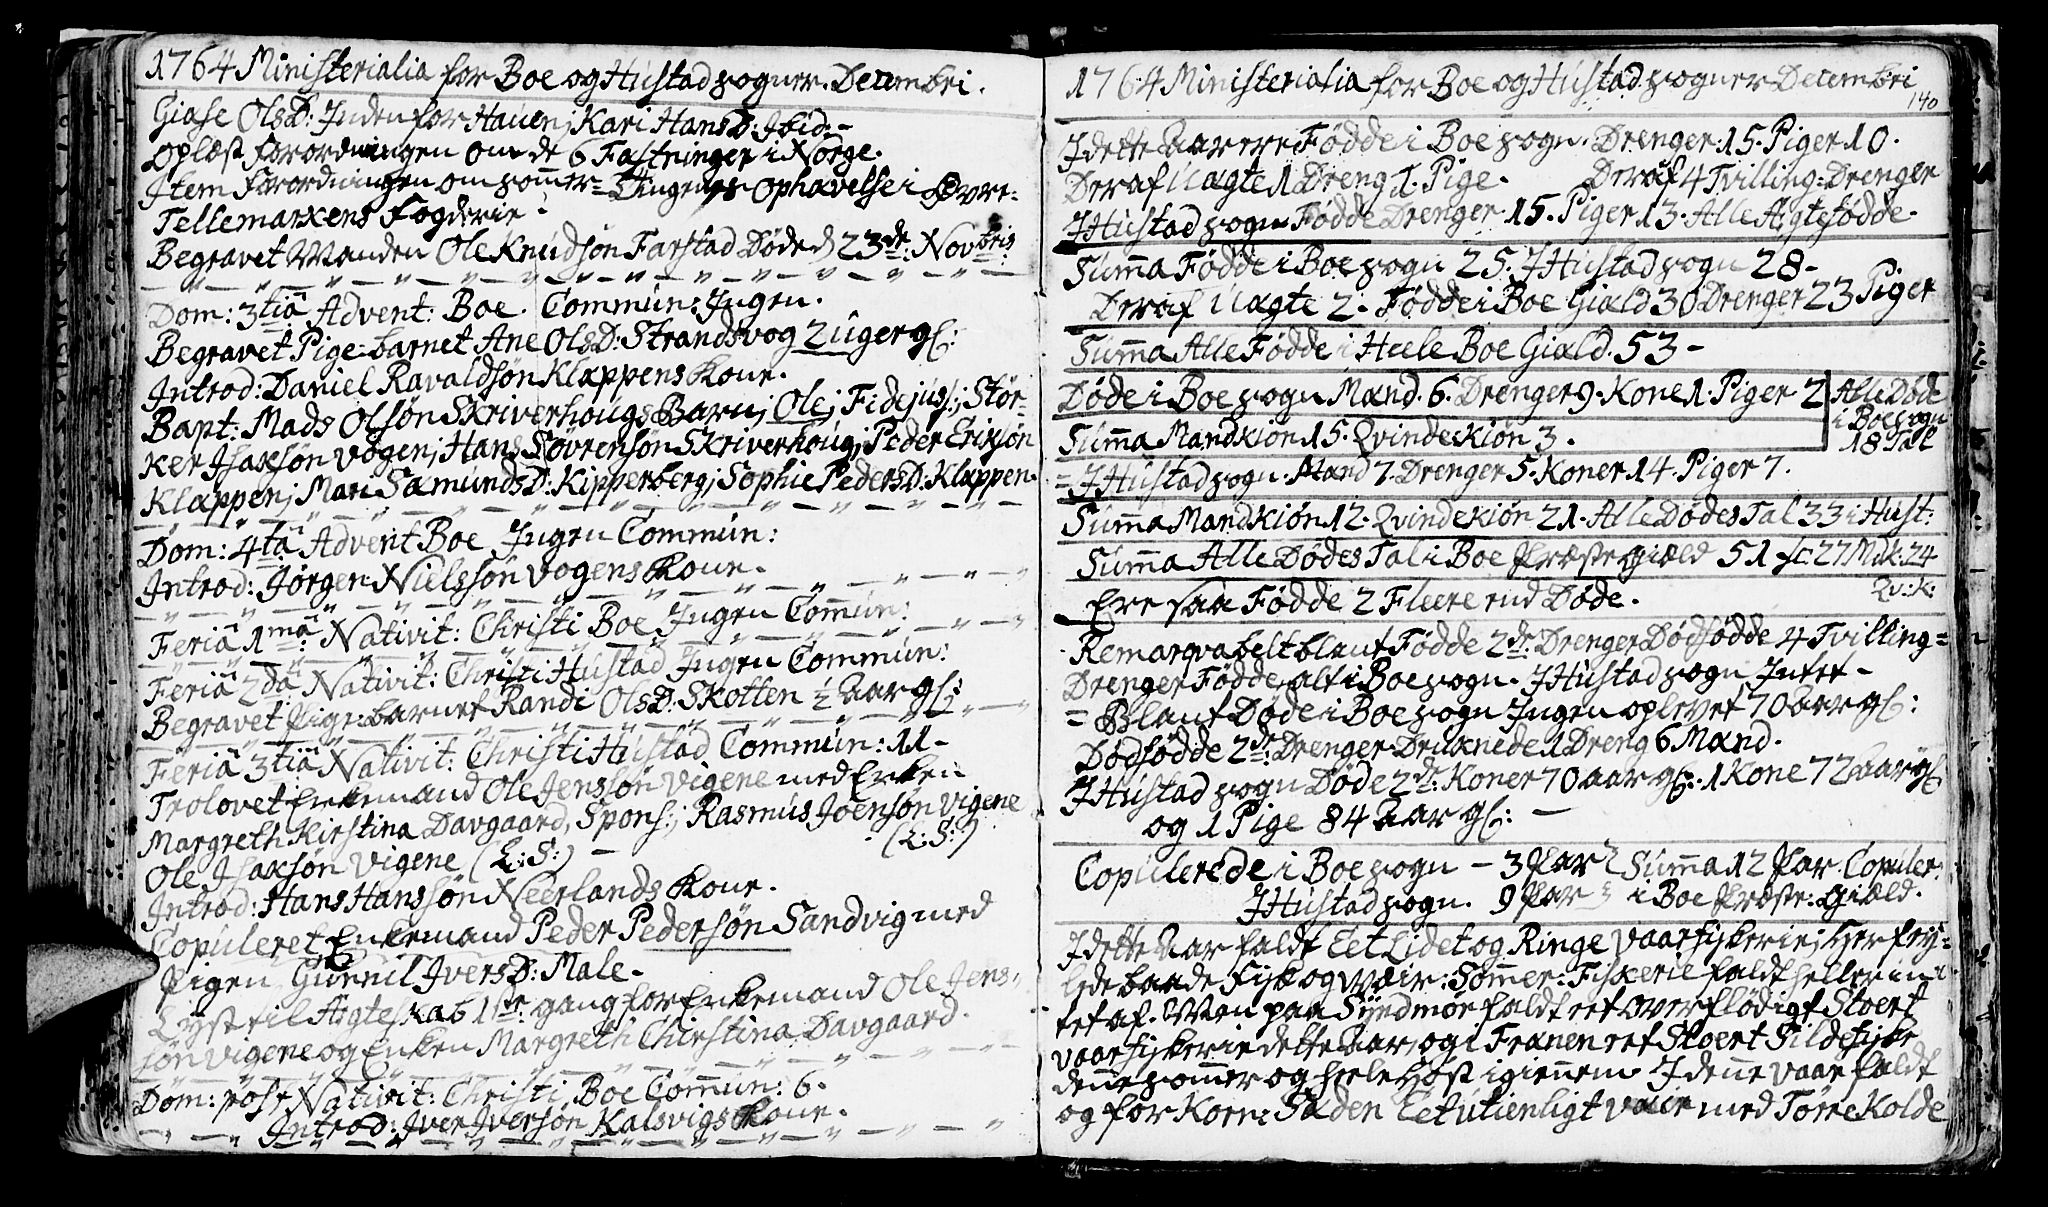 1764 Ministerialia for Boe og Hustad sogner. Decembri.
Giase OlsD: Inden for Hauen; Kari HansD: Ibid: -
Oplæst forordningen om de 6 Fastninger i Norge.
Item Forordningen om sommer-Tingenes Ophævelse i Øvre-
Tellemarkens Fogderie.
Begravet Manden Ole Knudsøn Farstad Døde d 23de: Novbris:
Dom: 3tiâ Advent: Boe. Commun: Ingen.
Begravet Pige-barnet Ane OlsD: Strandsvog 2 Uger gl:
Introd: Daniel Ravaldsøn Klappens Kone.
Bapt: Mads Olsøn Skriverhougs Barn; Ole; Fidejus:; Stør-
ker Isaksøn Vogen; Hans Sovrensøn Skriverhoug; Peder Eriksøn
Klappen; Mari SamundsD: Kipperberg; Sophie PedersD: Klappen.
Dom: 4tâ Advent Boe Ingen Commun:
Introd: Jørgen Nielssøn Vogens Kone.
Feriâ 1mâ: Nativit: Christi Boe Ingen Commun:
Feriâ 2dâ Nativit: Christi Hustad Ingen Commun:
Begravet Pige-barnet Randi OlsD: Skotten ½ Aar gl:
Feriâ 3tiâ Nativit: Christi Hustad Commun: 11 -
Trolovet Enkemand Ole Jenssøn Vigene med Enken
Margreth Kirstina Davgaard, Spons:; Rasmus Joensøn Vigene
Ole Isaksøn Vigene (L:S:) - (L:S:)
Introd: Hans Hanssøn Neerlands Kone.
Copuleret Enkemand Peder Pedersøn Sandvig med
Pigen Gunnil IversD: Male.
Lyst til Ægteskab 1ste gang for Enkemand Ole Jens-
søn Vigene og Enken Margreth Chirstina Davgaard.
Dom: post Nativit: Christi, Boe Commun: 6.
Introd: Iver Iversøn Kalsvigs Kone.
1764 Ministerialia for Boe og Hustad sogner Decembri
140
I dette Aar ere Fødde i Boe sogn. Drenger 15. Piger 10.
Deraf Uægte 1 Dreng 1. Pige. Deraf 4 Tvilling-Drenger
I Hustad sogn Fødde Drenger 15. Piger 13. Alle Ægtefødde.
Summa Fødde i Boe sogn 25. I Hustad sogn 28 -
Deraf Uægte 2. Fødde i Boe Giæld 30 Drenger 23 Piger
Summa Alle Fødde i Heele Boe Giæld. 53 -
Døde i Boe sogn Mænd. 6. Drenger 9. Kone 1. Piger 2 Alle Døde
i Boe sogn
Summa Mandkiøn 15. Qvindekiøn 3. 18 Tal
- I Hustad sogn. Mænd 7. Drenger 5. Koner 14. Piger 7.
Summa Mandkiøn 12. Qvindekiøn 21. Alle Dødes Tal 33 i Hust:
Summa Alle Dødes Tal i Boe Præstegiæld 51 sc: 27 M:k: 24
Qv:k:
Ere saa Fødde 2 Fleere end Døde.
Remarqvabelt blant Fødde 2de: Drenger Dødfødde 4 Tvilling-
Drenger Fødde, alt i Boe sogn. I Hustad sogn Intet -
- Blant Døde i Boe sogn Ingen oplevet 70 Aar gl:
Dødfødde 2de: Drenger. Druknede 1 Dreng 6 Mænd.
I Hustad sogn Døde 2de: Koner 70 Aar gl: 1 Kone 72 Aar gl:
og 1 Pige 84 Aar gl: -
Copulerede i Boe sogn - 3 Par Summa 12 Par Copuler:
I Hustad sogn. 9 Par i Boe Præste: Giæld.
I dette Aar faldt Eet Lidet og Ringe Vaarfiskerie; Her fey-
lede baade Fisk og Vær: Sommer-Fiskerie faldt heller in-
tet af. Men paa Syndmør faldt eet Overflødigt Stoert
Vaarfiskerie dette Aar, og i Franen eet Stoert Sildefiske
denne sommer og heele Høst igiennem. I denne Vaar faldt
og for Korn-Sæden Eet utienligt Veir med Tørre Kolde